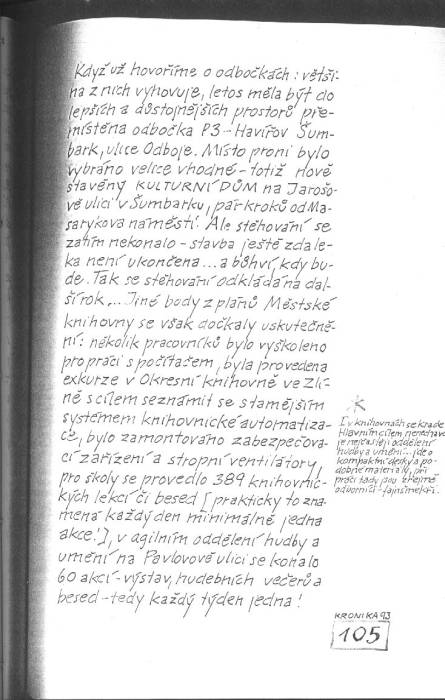 Když už hovoříme o odbočkách: větši-
na z nich vyhovuje, letos měla být do
lepších a důstojnějších prostorů pře-
místěna odbočka P3-Havířov Šum-
bark, ulice Odboje. Místo pro ni bylo
vybráno velice vhodné-totiž nově
stavěný KULTURNÍ DŮM na Jarošo-
vě ulici v Šumbarku, pár kroků od Ma-
sarykova náměstí. Ale stěhování se
zatím nekonalo-stavba ještě zdale-
ka není ukončena...a bůhví, kdy bu-
de. Tak se stěhování odkládá na dal-
ší rok... Jiné body z plánů Městské
knihovny se však dočkaly uskutečně-
ní: několik pracovníků bylo vyškoleno
pro práci s počítačem, byla provedena
exkurze v Okresní knihovně ve Zlí-
ně s cílem seznámit se s tamějším
systémem knihovnické automatiza-
ce, bylo zamontováno zabezpečova-
cí zařízení a stropní ventilátory,
pro školy se provedlo 389 knihovnic-
kých lekcí či besed [prakticky to zna-
mená každý den minimálně jedna
akce!], v agilním oddělení hudby a
umění na Pavlovově ulici se konalo
60 akcí-výstav, hudebních večerů a
besed-tedy každý týden jedna!
*
I v knihovnách se krade.
Hlavním cílem
je nejčastěji oddělení
hudby a umění... jde o
kompaktní desky a po-
dobné materiály, při
práci tady jsou zřejmě
odborníci-fajnšmekři.
KRONIKA 93
105